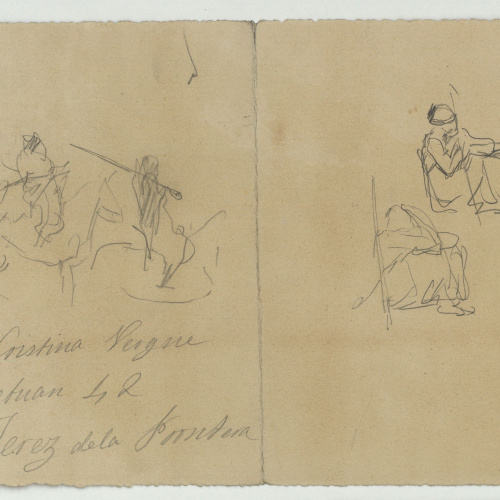 Cristina Vergne
etuan 42
Jerez de la Frontera